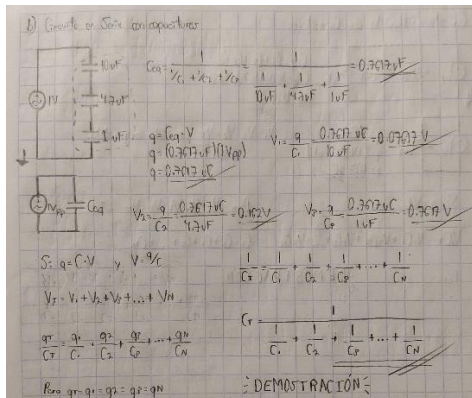 b) Circuito en Serie con capacitores
10uF
1V
4.7uF
1uF
Ceq = 1 / (1/C1 + 1/C2 + 1/C3) = 1 / (1/10uF + 1/4.7uF + 1/1uF) = 0.7617uF
q = Ceq·V
q = (0.7617uF)(1Vpp)
q = 0.7617uC
V1 = q/C1 = 0.7617uC/10uF = 0.07617V
1Vpp
Ceq
V2 = q/C2 = 0.7617uC/4.7uF = 0.162V
V3 = q/C3 = 0.7617uC/1uF = 0.7617V
Si q = C·V y V = q/C
VT = V1 + V2 + V3 + ... + VN
qT/CT = q1/C1 + q2/C2 + q3/C3 + ... + qN/CN
Para qT = q1 = q2 = q3 = qN
1/CT = 1/C1 + 1/C2 + 1/C3 + ... + 1/CN
CT = 1 / (1/C1 + 1/C2 + 1/C3 + ... + 1/CN)
DEMOSTRACIÓN